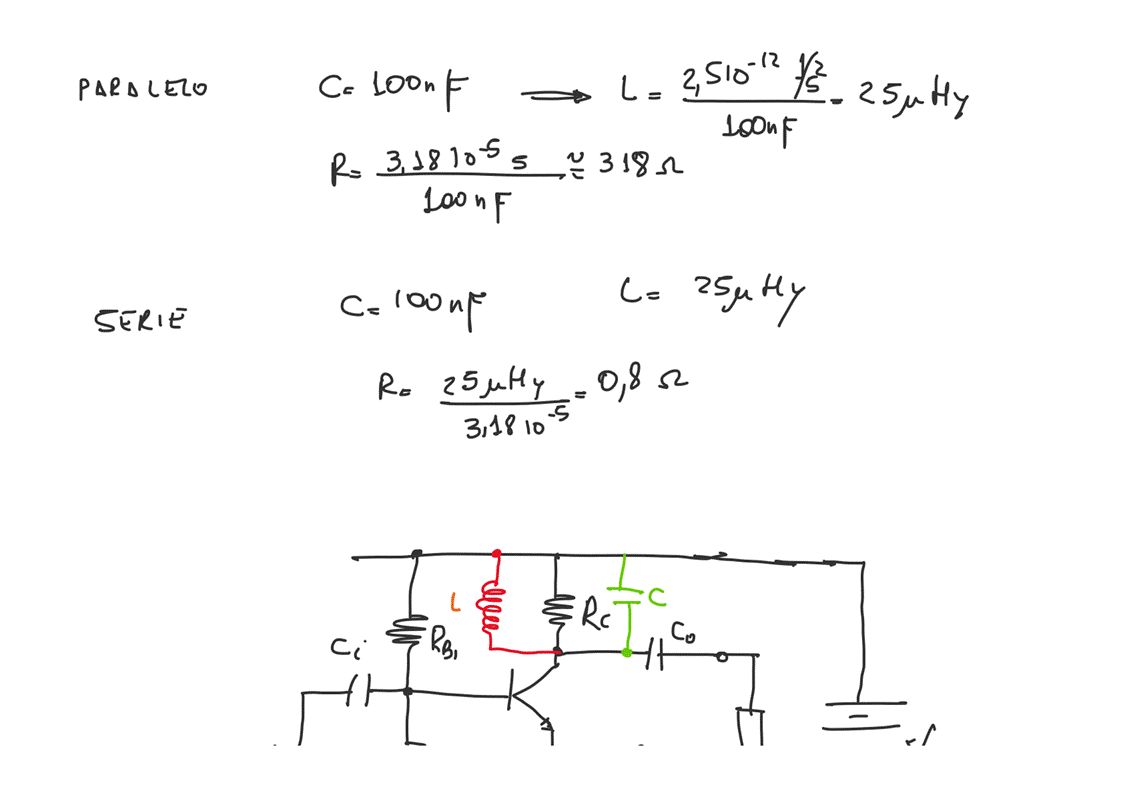 PARALELO C= 100nF → L = 2,5 10⁻¹² 1/s² / 100nF = 25μHy
R= 3,18 10⁻⁵ s / 100nF ≈ 318 Ω
SERIE C= 100nF L= 25μHy
R= 25μHy / 3,18 10⁻⁵ = 0,8 Ω
L C
Ci RB1 RC Co